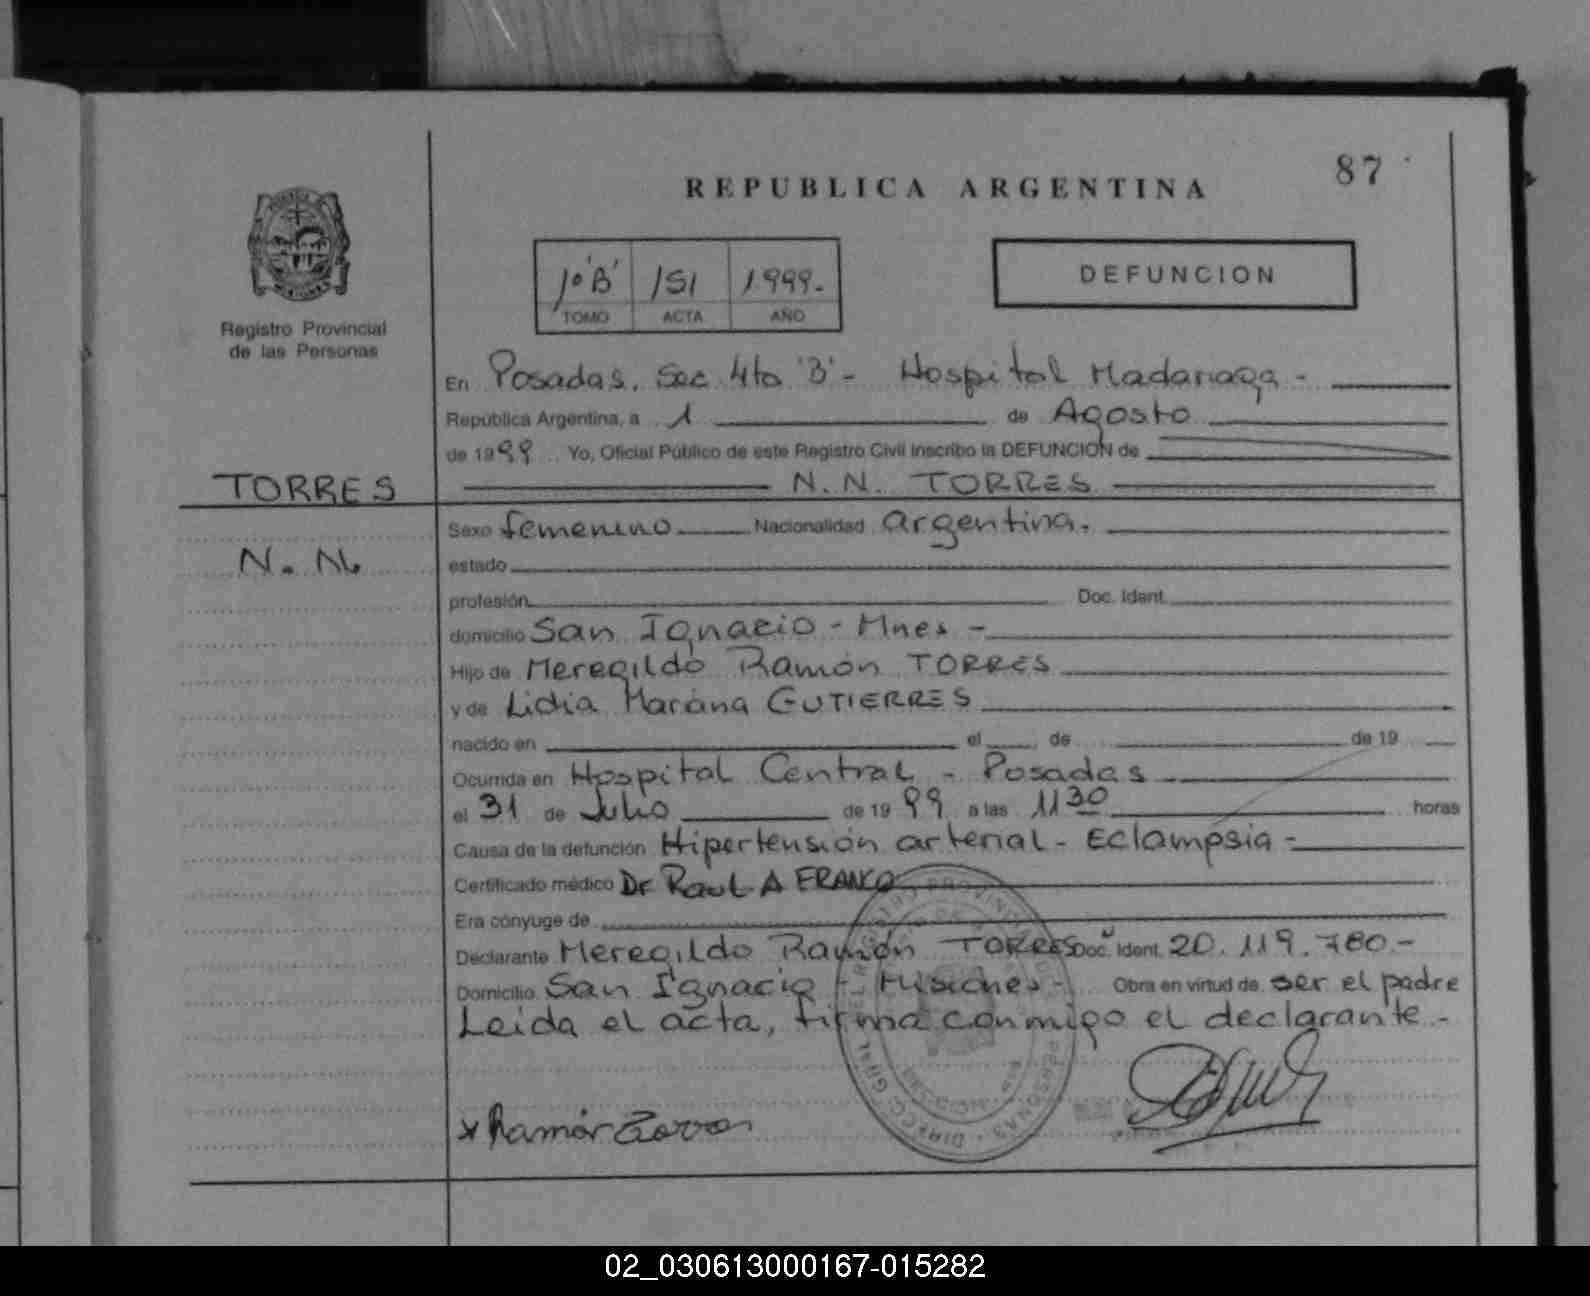 87
REPUBLICA ARGENTINA
1º 'B' 151 1.999.-
TOMO ACTA AÑO
DEFUNCION
Registro Provincial
de las Personas
En Posadas. Sec 4to 'B' - Hospital Madariaga -
República Argentina, a 1 de Agosto
de 1999 Yo, Oficial Público de este Registro Civil inscribo la DEFUNCION de
TORRES N.N. TORRES
Sexo femenino Nacionalidad argentina.
N. N. estado
profesión Doc. Ident.
domicilio San Ignacio - Mnes -
Hijo de Meregildo Ramón TORRES
y de Lidia Marana GUTIERRES
nacido en el de de 19
Ocurrida en Hospital Central - Posadas
el 31 de Julio de 1999 a las 11 30 horas
Causa de la defunción Hipertensión arterial - Eclampsia -
Certificado médico Dr Raul A FRANCO
Era cónyuge de
Declarante Meregildo Ramón TORRES Doc. Ident. 20.119.780.-
Domicilio San Ignacio - Misiones - Obra en virtud de ser el padre
Leida el acta, firma conmigo el declarante.-
x Ramón Torres
02_030613000167-015282